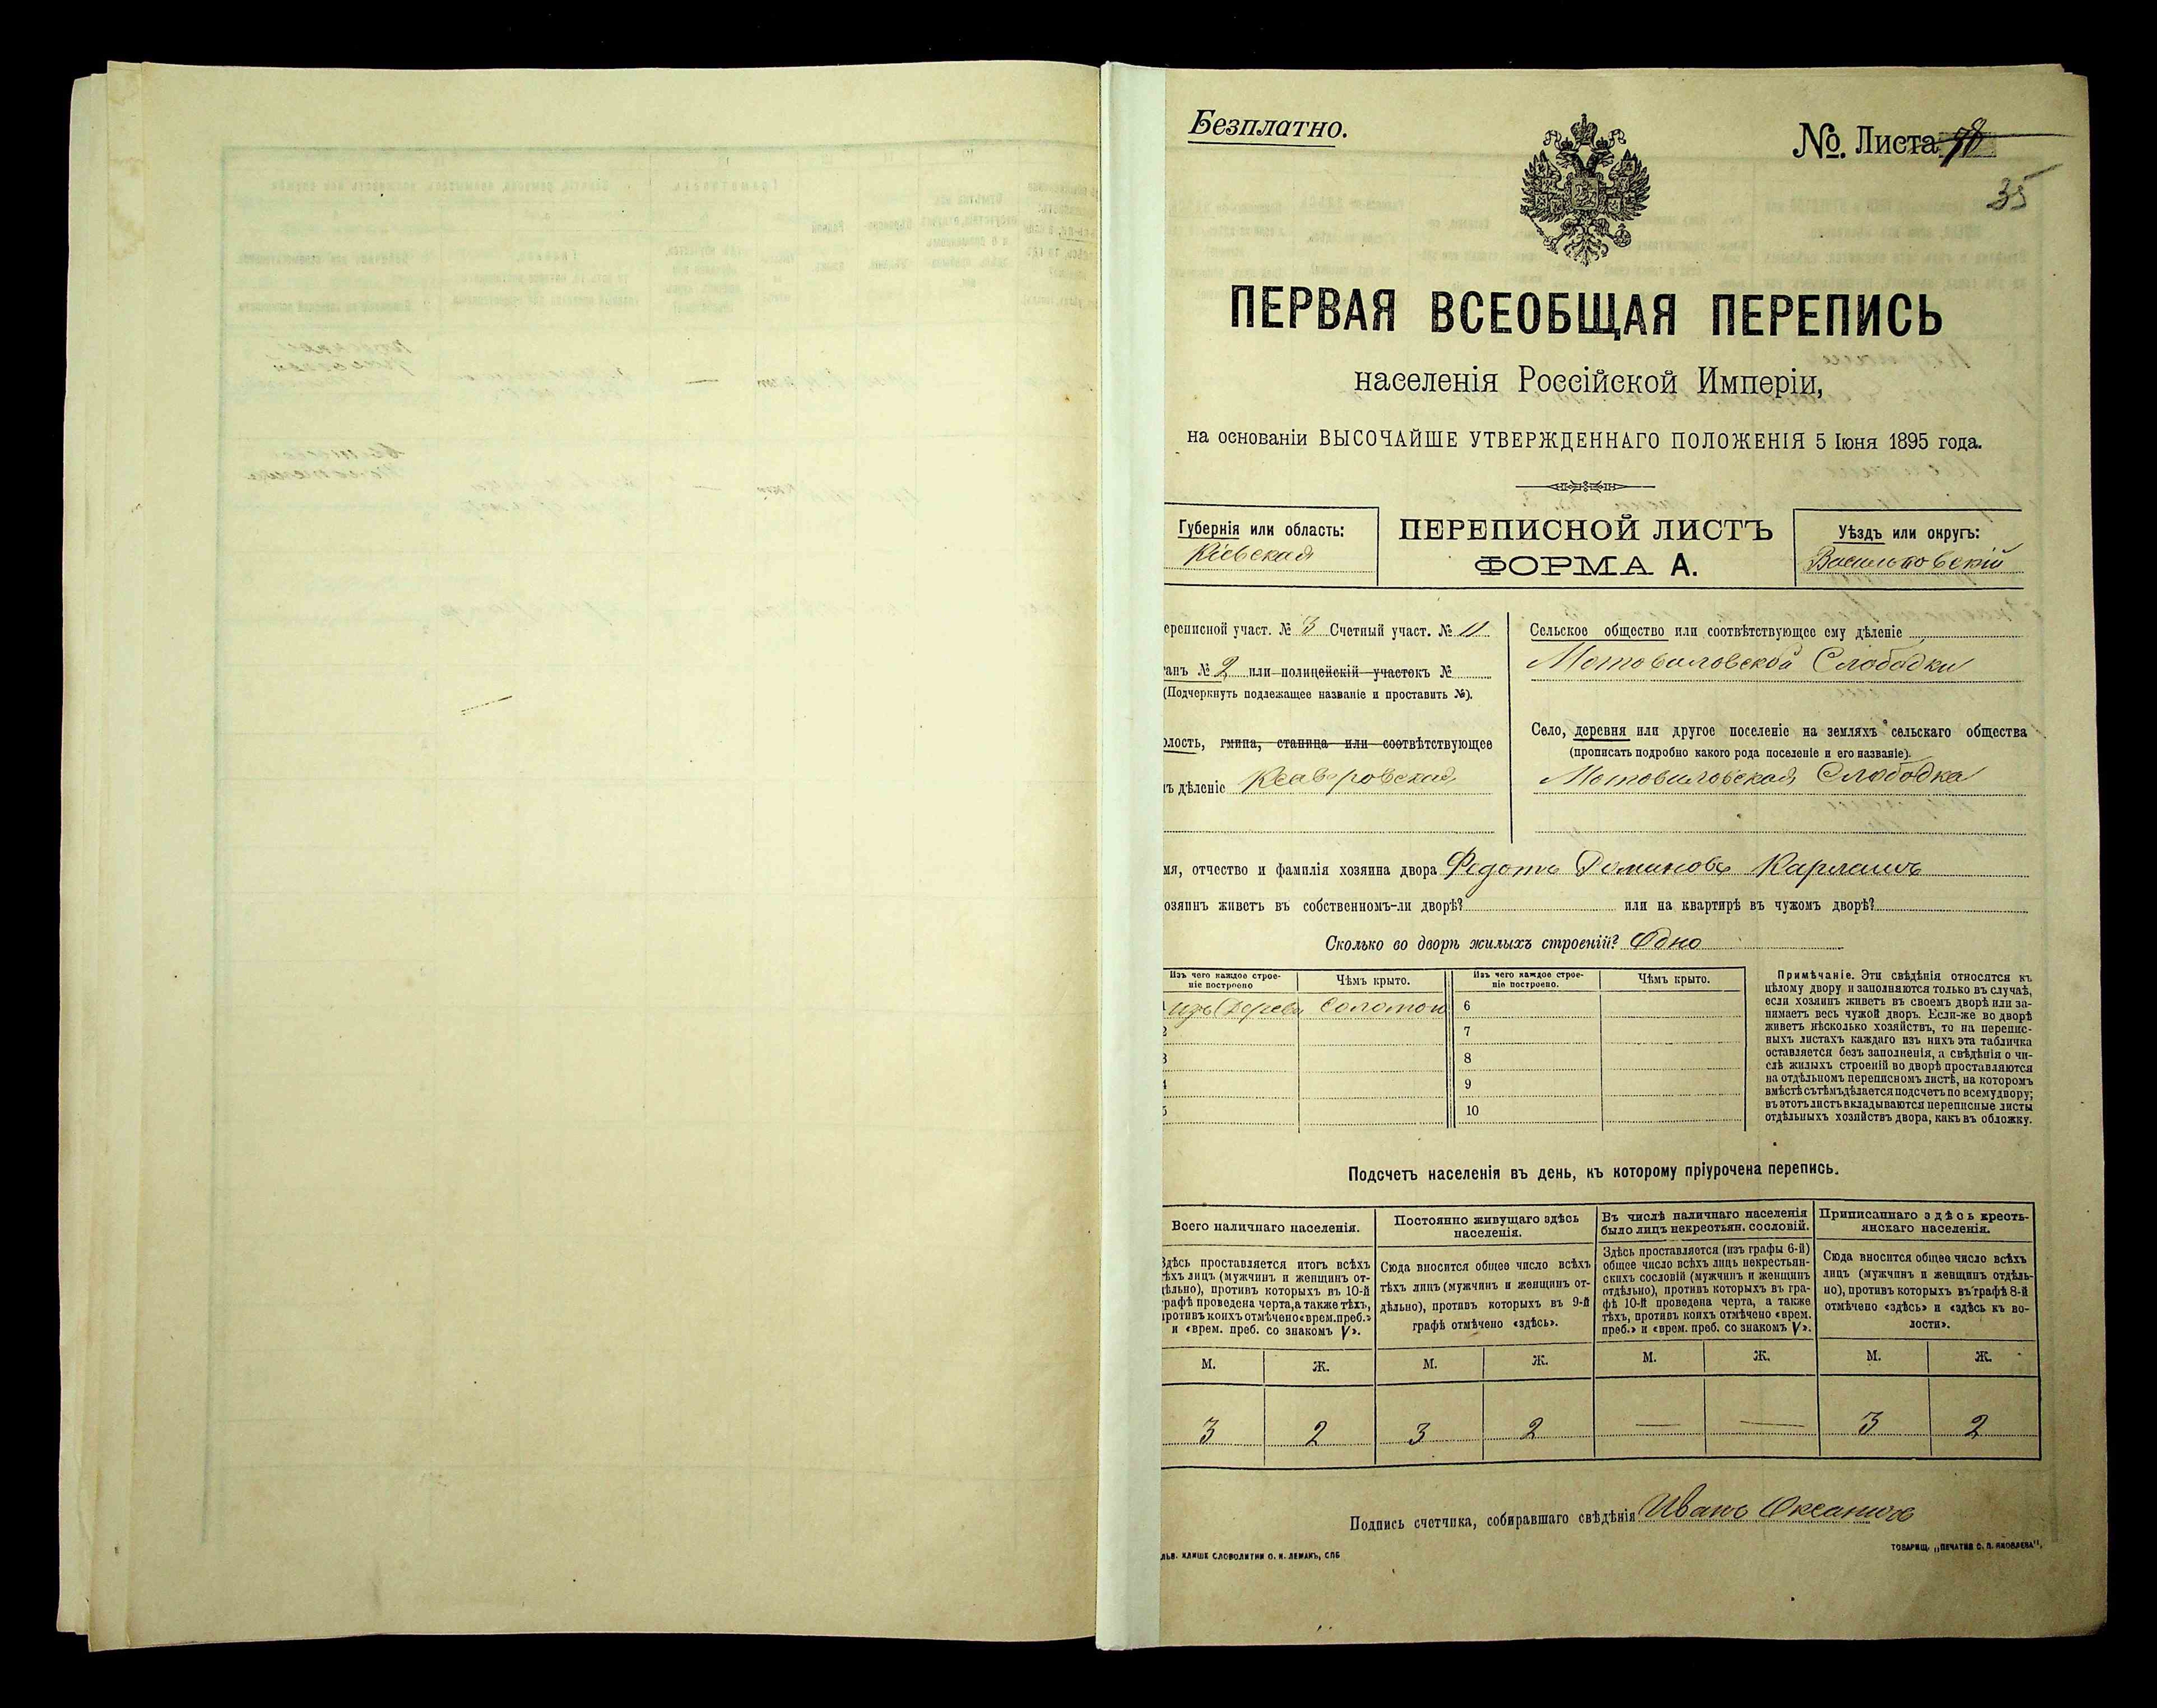 Безплатно.
№. Листа
35
ПЕРВАЯ ВСЕОБЩАЯ ПЕРЕПИСЬ
населенія Россійской Имперіи,
на основаніи ВЫСОЧАЙШЕ УТВЕРЖДЕННАГО ПОЛОЖЕНІЯ 5 Іюня 1895 года.
Губернія или область:
Кіевская
ПЕРЕПИСНОЙ ЛИСТЪ
ФОРМА А.
Уѣздъ или округъ:
Васильковскій
ереписной участ. № 3 Счетный участ. № 11
анъ № 2 или полицейскій участокъ №
(Подчеркнуть подлежащее названіе и проставить №).
олость, гмина, станица или соотвѣтствующее
ъ дѣленіе Ксаверовская
Сельское общество или соотвѣтствующее ему дѣленіе
Мотовиловской Слободки
Село, деревня или другое поселеніе на земляхъ сельскаго общества
(прописать подробно какого рода поселеніе и его названіе).
Мотовиловская Слободка
мя, отчество и фамилія хозяина двора Федотъ Доминовъ Карлашъ
озяинъ живетъ въ собственномъ-ли дворѣ? или на квартирѣ въ чужомъ дворѣ?
Сколько во дворѣ жилыхъ строеній? Одно
Изъ чего каждое строе-
ніе построено
Чѣмъ крыто.
Изъ чего каждое строе-
ніе построено.
Чѣмъ крыто.
1 изъ Дерева Соломой 6
2 7
3 8
4 9
5 10
Примѣчаніе. Эти свѣдѣнія относятся къ
цѣлому двору и заполняются только въ случаѣ,
если хозяинъ живетъ въ своемъ дворѣ или за-
нимаетъ весь чужой дворъ. Если-же во дворѣ
живетъ нѣсколько хозяйствъ, то на перепис-
ныхъ листахъ каждаго изъ нихъ эта табличка
оставляется безъ заполненія, а свѣдѣнія о чи-
слѣ жилыхъ строеній во дворѣ проставляются
на отдѣльномъ переписномъ листѣ, на которомъ
вмѣстѣ съ тѣмъ дѣлается подсчетъ по всему двору;
въ этотъ листъ вкладываются переписные листы
отдѣльныхъ хозяйствъ двора, какъ въ обложку.
Подсчетъ населенія въ день, къ которому пріурочена перепись.
Всего наличнаго населенія.
Здѣсь проставляется итогъ всѣхъ
тѣхъ лицъ (мужчинъ и женщинъ от-
дѣльно), противъ которыхъ въ 10-й
графѣ проведена черта, а также тѣхъ,
противъ коихъ отмѣчено «врем. преб.»
и «врем. преб. со знакомъ V».
Постоянно живущаго здѣсь
населенія.
Сюда вносится общее число всѣхъ
тѣхъ лицъ (мужчинъ и женщинъ от-
дѣльно), противъ которыхъ въ 9-й
графѣ отмѣчено «здѣсь».
Въ числѣ наличнаго населенія
было лицъ некрестьян. сословій.
Здѣсь проставляется (изъ графы 6-й)
общее число всѣхъ лицъ некрестьян-
скихъ сословій (мужчинъ и женщинъ
отдѣльно), противъ которыхъ въ гра-
фѣ 10-й проведена черта, а также
тѣхъ, противъ коихъ отмѣчено «врем.
преб.» и «врем. преб. со знакомъ V».
Приписаннаго здѣсь кресть-
янскаго населенія.
Сюда вносится общее число всѣхъ
лицъ (мужчинъ и женщинъ отдѣль-
но), противъ которыхъ въ графѣ 8-й
отмѣчено «здѣсь» и «здѣсь къ во-
лости».
М. Ж. М. Ж. М. Ж. М. Ж.
3 2 3 2 — — 3 2
Подпись счетчика, собиравшаго свѣдѣнія Иванъ
ЛЬВ. КЛИШЕ СЛОВОЛИТНИ О. И. ЛЕМАНЪ, СПБ
ТОВАРИЩ. „ПЕЧАТНЯ С. П. ЯКОВЛЕВА“,